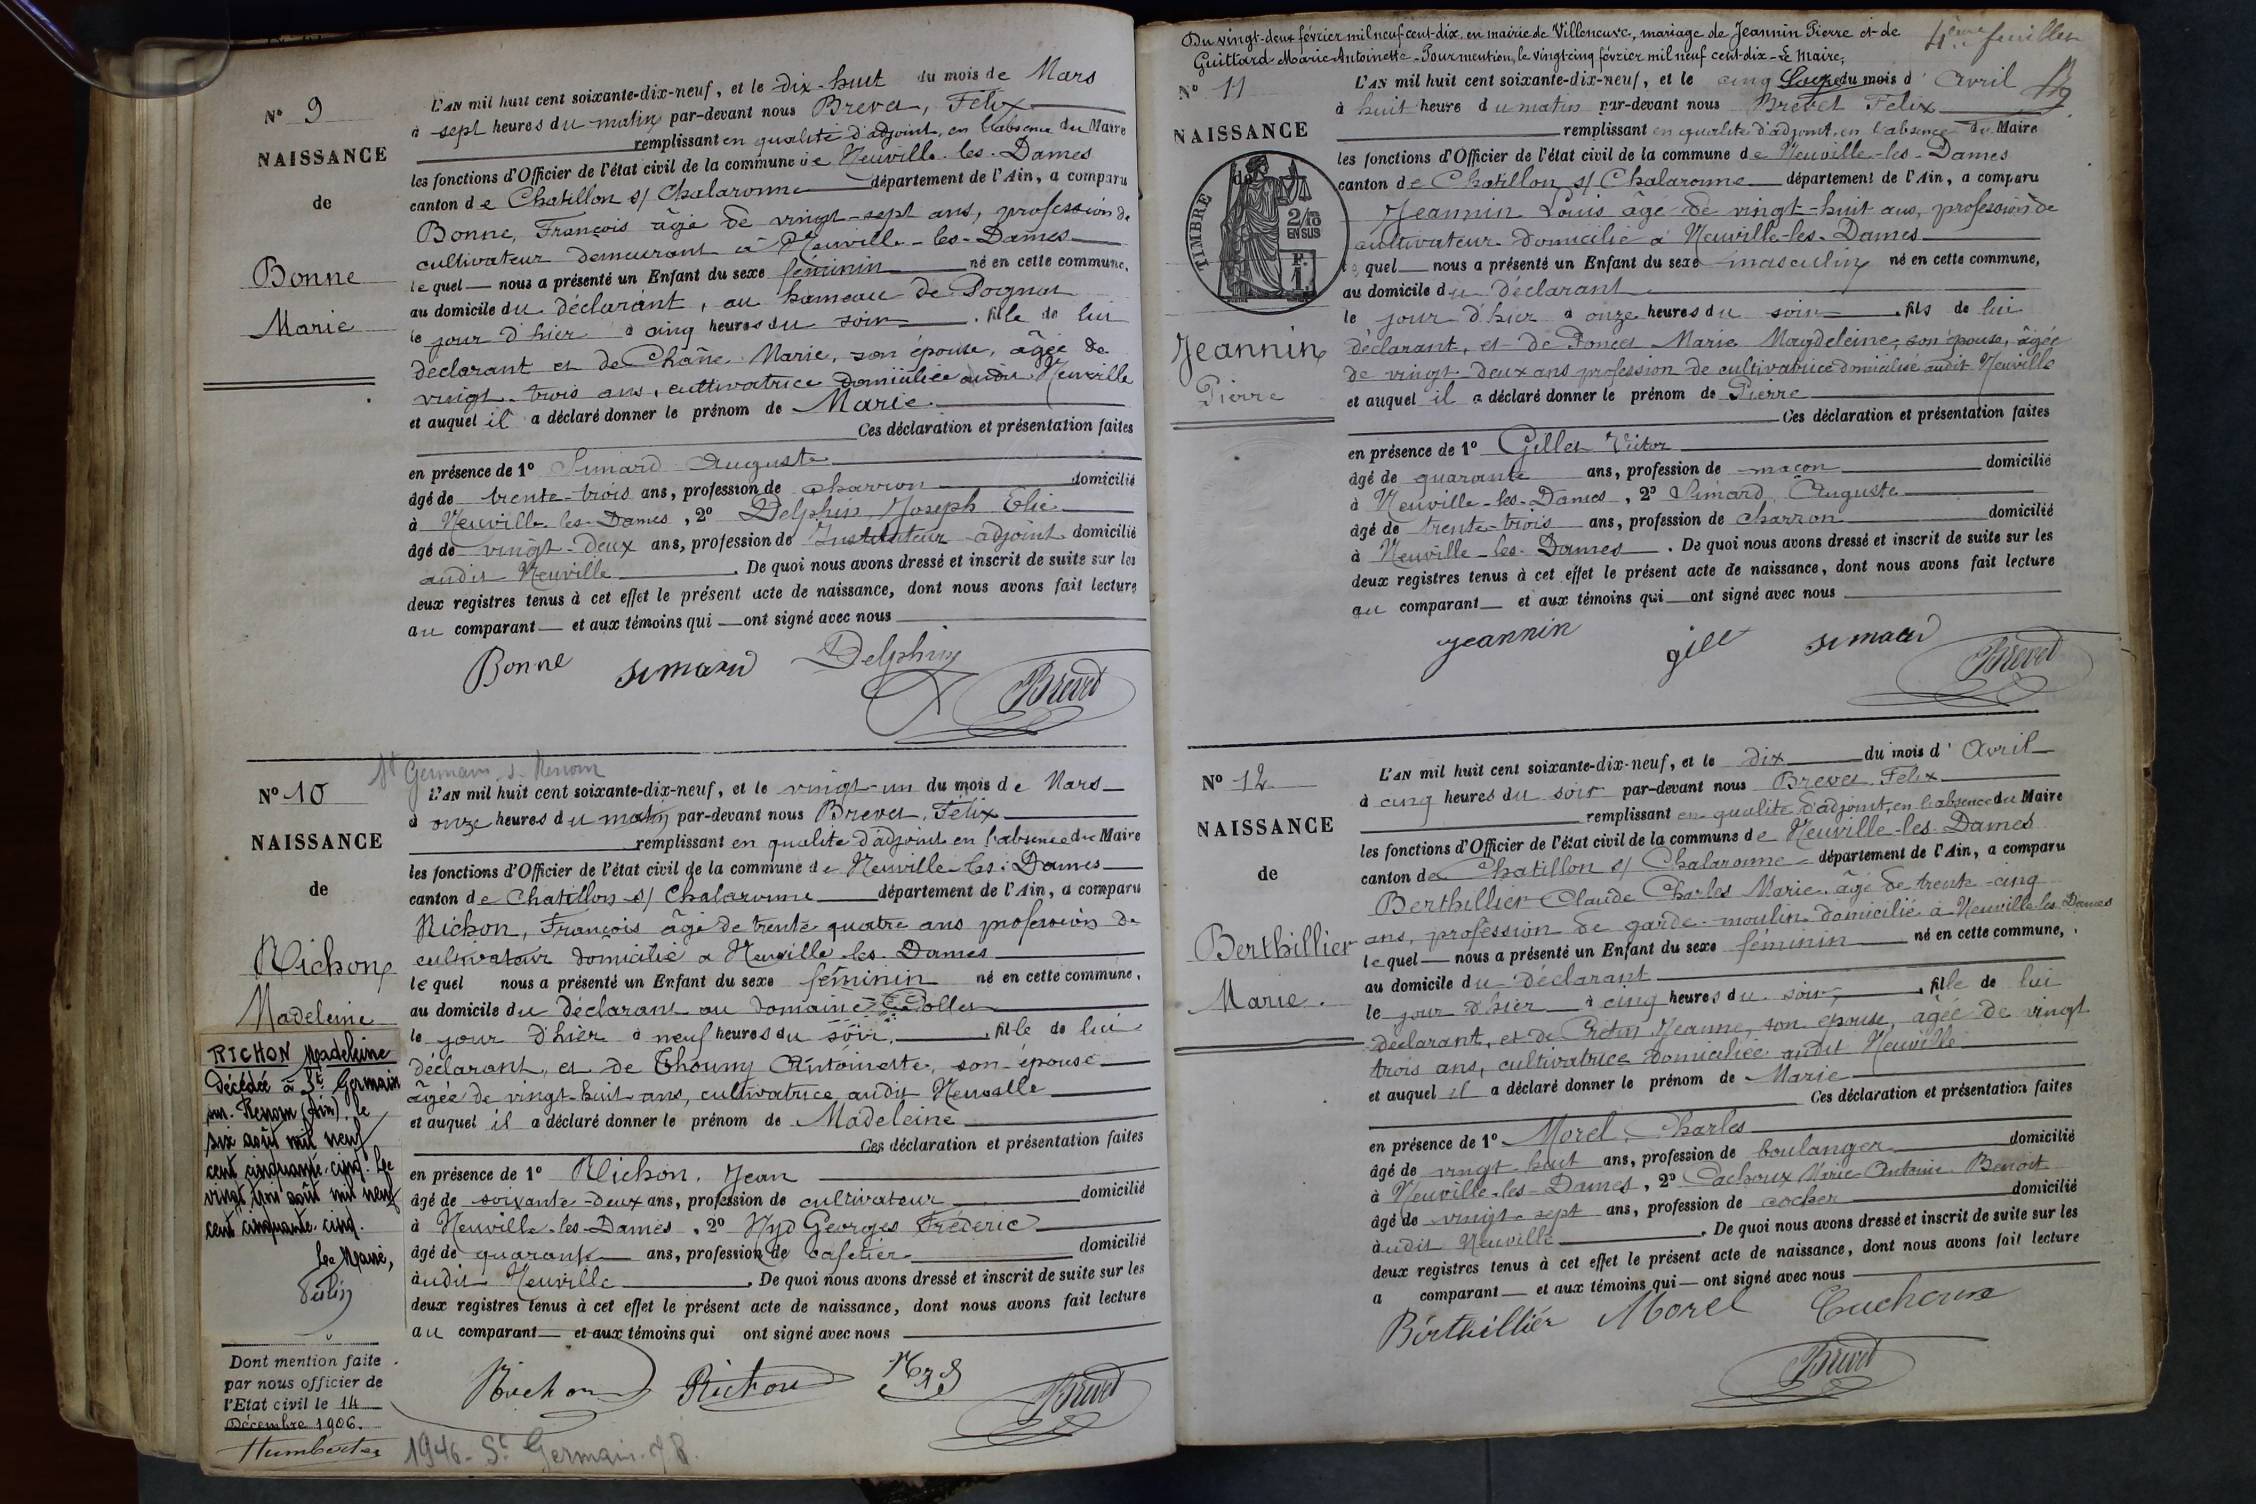 N° 9
NAISSANCE
de
Bonne
Marie
L'AN mil huit cent soixante-dix-neuf, et le dix-huit du mois de Mars
à sept heures du matin par-devant nous Brevet, Félix
remplissant en qualité d'adjoint, en l'absence du Maire
les fonctions d'Officier de l'état civil de la commune de Neuville-les-Dames
canton de Chatillon s/ Chalaronne département de l'Ain, a comparu
Bonne, François âgé de vingt-sept ans, profession de
cultivateur demeurant à Neuville-les-Dames
lequel nous a présenté un Enfant du sexe féminin né en cette commune,
au domicile du déclarant, au hameau de
le jour d'hier à cinq heures du soir, fille de lui
déclarant et de Chane Marie, son épouse, âgée de
vingt-trois ans, cultivatrice domiciliée audit Neuville
et auquel il a déclaré donner le prénom de Marie
Ces déclaration et présentation faites
en présence de 1° Simard Auguste
âgé de trente-trois ans, profession de charron domicilié
à Neuville-les-Dames, 2° Delphin Joseph Elie
âgé de vingt-deux ans, profession de Instituteur adjoint domicilié
audit Neuville. De quoi nous avons dressé et inscrit de suite sur les
deux registres tenus à cet effet le présent acte de naissance, dont nous avons fait lecture
au comparant et aux témoins qui ont signé avec nous
Bonne Simard Delphin Brevet
St Germain s. Renom
N° 10
NAISSANCE
de
Richon
Madeleine
L'AN mil huit cent soixante-dix-neuf, et le vingt-un du mois de Mars
à onze heures du matin par-devant nous Brevet, Félix
remplissant en qualité d'adjoint en l'absence du Maire
les fonctions d'Officier de l'état civil de la commune de Neuville-les-Dames
canton de Chatillon s/ Chalaronne département de l'Ain, a comparu
Richon, François âgé de trente quatre ans profession de
cultivateur domicilié à Neuville-les-Dames
lequel nous a présenté un Enfant du sexe féminin né en cette commune,
au domicile du déclarant au domaine
le jour d'hier à neuf heures du soir, fille de lui
déclarant, et de Thoumy Antoinette, son épouse
âgée de vingt-huit ans, cultivatrice audit Neuville
et auquel il a déclaré donner le prénom de Madeleine
Ces déclaration et présentation faites
en présence de 1° Richon, Jean
âgé de soixante-deux ans, profession de cultivateur domicilié
à Neuville-les-Dames, 2° Georges Fréderic
âgé de quarante ans, profession de cafetier domicilié
audit Neuville. De quoi nous avons dressé et inscrit de suite sur les
deux registres tenus à cet effet le présent acte de naissance, dont nous avons fait lecture
au comparant et aux témoins qui ont signé avec nous
Richon Richon Brevet
RICHON Madeleine
Décédée à St Germain
sur Renom (Ain), le
six août mil neuf
cent cinquante-cinq. Le
vingt trois août mil neuf
cent cinquante-cinq.
Le Maire,
Dont mention faite
par nous officier de
l'Etat civil le 14
Décembre 1906.
1946 - St Germain s/ R.
Du vingt-deux février mil neuf cent-dix, en mairie de Villeneuve, mariage de Jeannin Pierre et de
Guittard Marie Antoinette. Pour mention, le vingt cinq février mil neuf cent-dix. Le Maire,
4ème feuillet
N° 11
NAISSANCE
de
TIMBRE
2/10 EN SUS
F. 1
Jeannin
Pierre
L'AN mil huit cent soixante-dix-neuf, et le cinq du mois d'Avril
à huit heure du matin par-devant nous Brevet Félix
remplissant en qualité d'adjoint en l'absence du Maire
les fonctions d'Officier de l'état civil de la commune de Neuville-les-Dames
canton de Chatillon s/ Chalaronne département de l'Ain, a comparu
Jeannin Louis âgé de vingt-huit ans, profession de
cultivateur domicilié à Neuville-les-Dames
lequel nous a présenté un Enfant du sexe masculin né en cette commune,
au domicile du déclarant
le jour d'hier à onze heures du soir, fils de lui
déclarant, et de Poncet Marie Magdeleine, son épouse, âgée
de vingt-deux ans profession de cultivatrice domicilié audit Neuville
et auquel il a déclaré donner le prénom de Pierre
Ces déclaration et présentation faites
en présence de 1° Gillet Victor
âgé de quarante ans, profession de maçon domicilié
à Neuville-les-Dames, 2° Simard, Auguste
âgé de trente-trois ans, profession de charron domicilié
à Neuville-les-Dames. De quoi nous avons dressé et inscrit de suite sur les
deux registres tenus à cet effet le présent acte de naissance, dont nous avons fait lecture
au comparant et aux témoins qui ont signé avec nous
Jeannin Simard Brevet
N° 12
NAISSANCE
de
Berthillier
Marie
L'AN mil huit cent soixante-dix-neuf, et le dix du mois d'Avril
à cinq heures du soir par-devant nous Brevet Félix
remplissant en qualité d'adjoint, en l'absence du Maire
les fonctions d'Officier de l'état civil de la commune de Neuville-les-Dames
canton de Chatillon s/ Chalaronne département de l'Ain, a comparu
Berthillier Claude Charles Marie, âgé de trente-cinq
ans, profession de garde-moulin domicilié à Neuville-les-Dames
lequel nous a présenté un Enfant du sexe féminin né en cette commune,
au domicile du déclarant
le jour d'hier à cinq heures du soir, fille de lui
déclarant, et de Jeanne, son épouse, âgée de vingt
trois ans, cultivatrice domiciliée audit Neuville
et auquel il a déclaré donner le prénom de Marie
Ces déclaration et présentation faites
en présence de 1° Morel, Charles
âgé de vingt huit ans, profession de boulanger domicilié
à Neuville-les-Dames, 2° Cachoux Marie Antoine Benoit
âgé de vingt-sept ans, profession de cocher domicilié
audit Neuville. De quoi nous avons dressé et inscrit de suite sur les
deux registres tenus à cet effet le présent acte de naissance, dont nous avons fait lecture
a comparant et aux témoins qui ont signé avec nous
Berthillier Morel Brevet